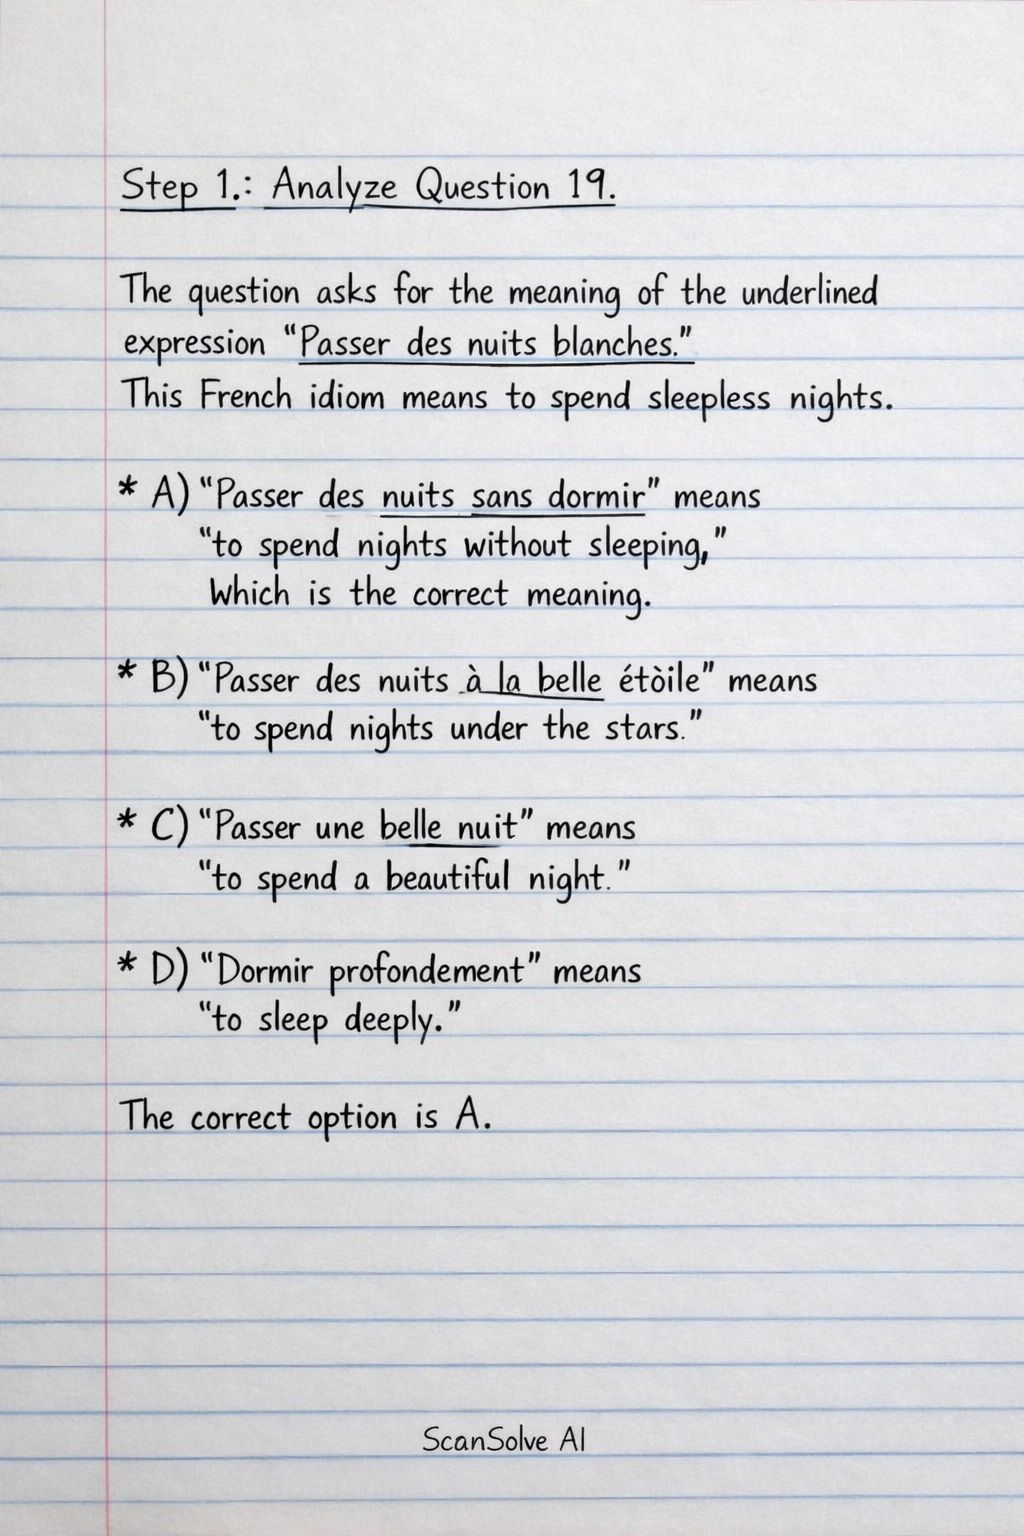 Step 1.: Analyze Question 19.
The question asks for the meaning of the underlined
expression “Passer des nuits blanches.”
This French idiom means to spend sleepless nights.
* A) “Passer des nuits sans dormir” means
“to spend nights without sleeping,”
Which is the correct meaning.
* B) “Passer des nuits à la belle étòile” means
“to spend nights under the stars.”
* C) “Passer une belle nuit” means
“to spend a beautiful night.”
* D) “Dormir profondement” means
“to sleep deeply.”
The correct option is A.
ScanSolve AI